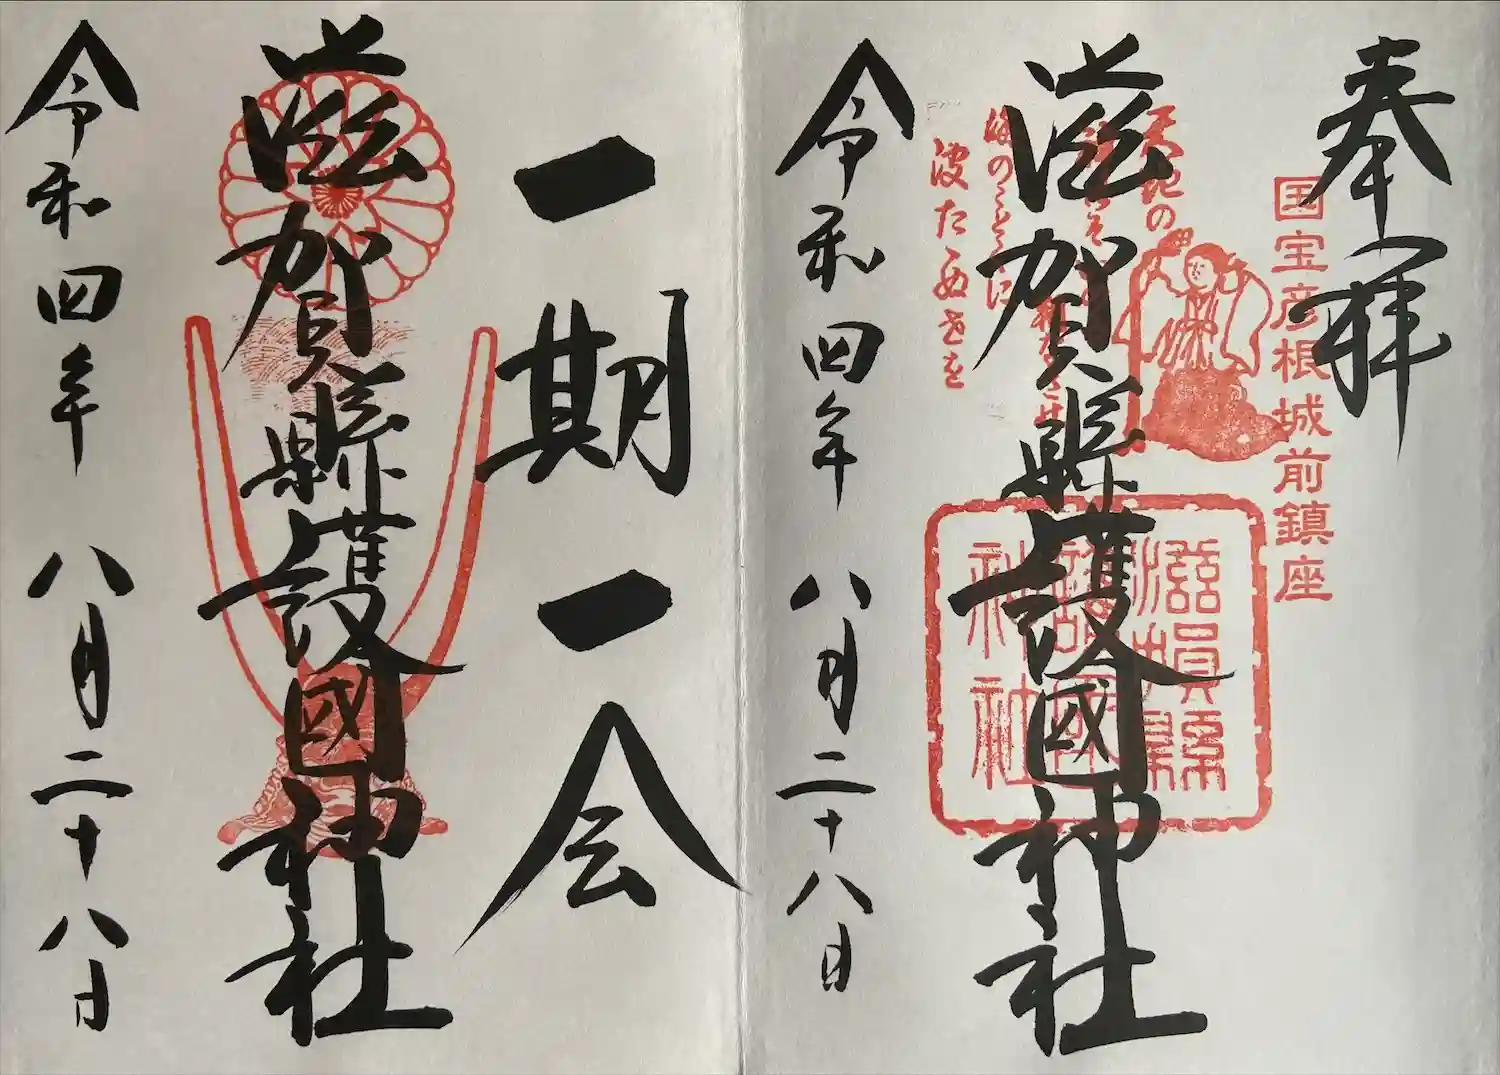 奉拝
国宝彦根城前鎮座
滋賀縣護國神社
天地の
波たぬせを
滋賀縣
護國
神社
令和四年 八月二十八日
一期一会
滋賀縣護國神社
令和四年 八月二十八日